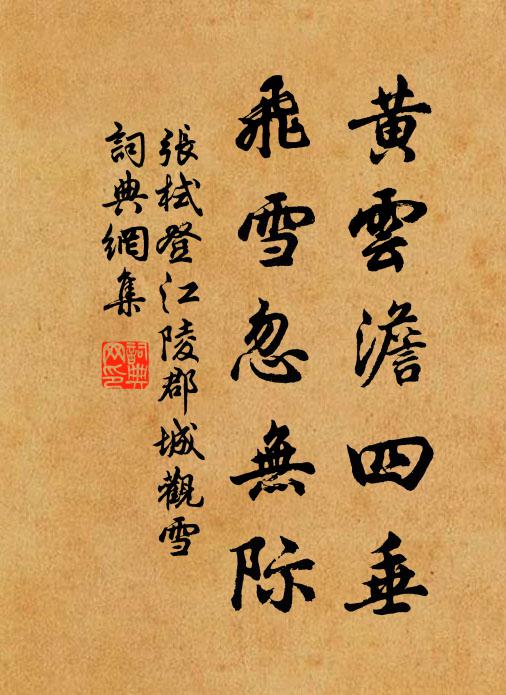 黄雲澹四垂
飛雪忽無际
張栻登江陵郡城觀雪
詞典網集
詞典網印